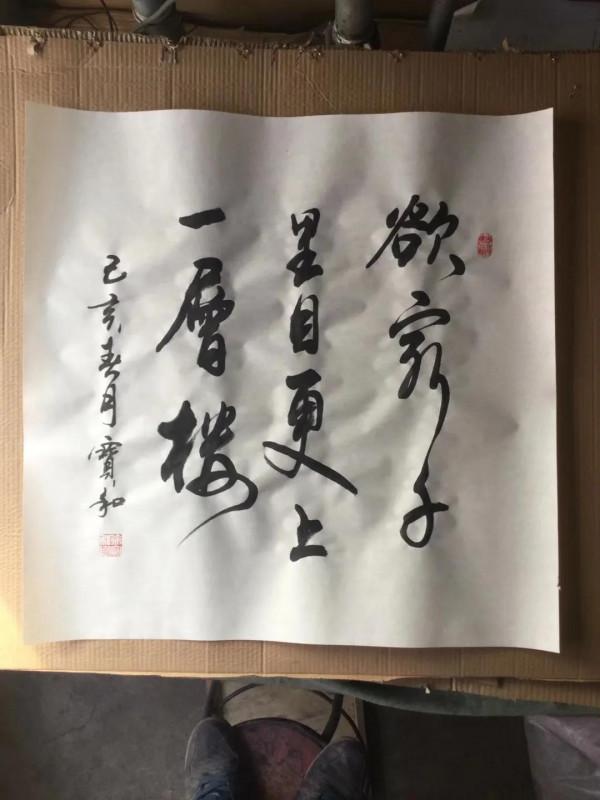 欲穷千
里目更上
一层楼
己亥春月寶和